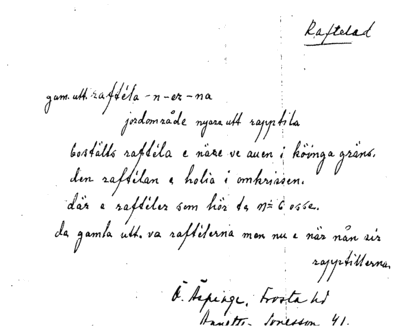 Raftelad
gam. utt. raftéla -n -er -na
jordområde nyare utt rapptila
raftéla e näre ve auen i köinga gräns.
den raftélan e holia i omkrissen.
där e raftéler som hör te n= 6 osse.
da gamla utt. va raftélerna men nu e när nån sir
rapptillerna.
Ö. Äspinge, Frosta hd
Jönsson 41.